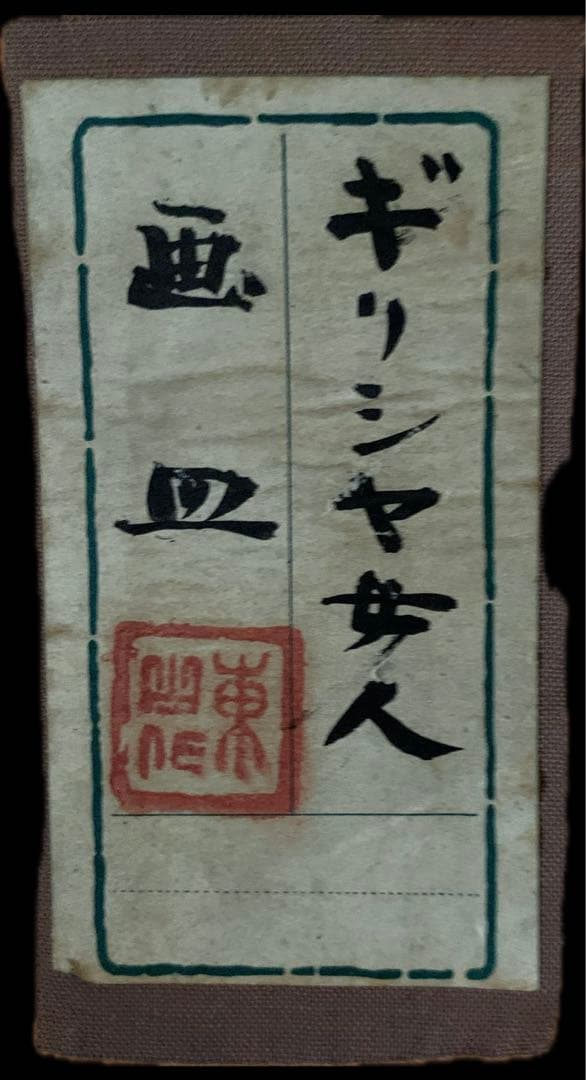 ギリシヤ女人
画皿